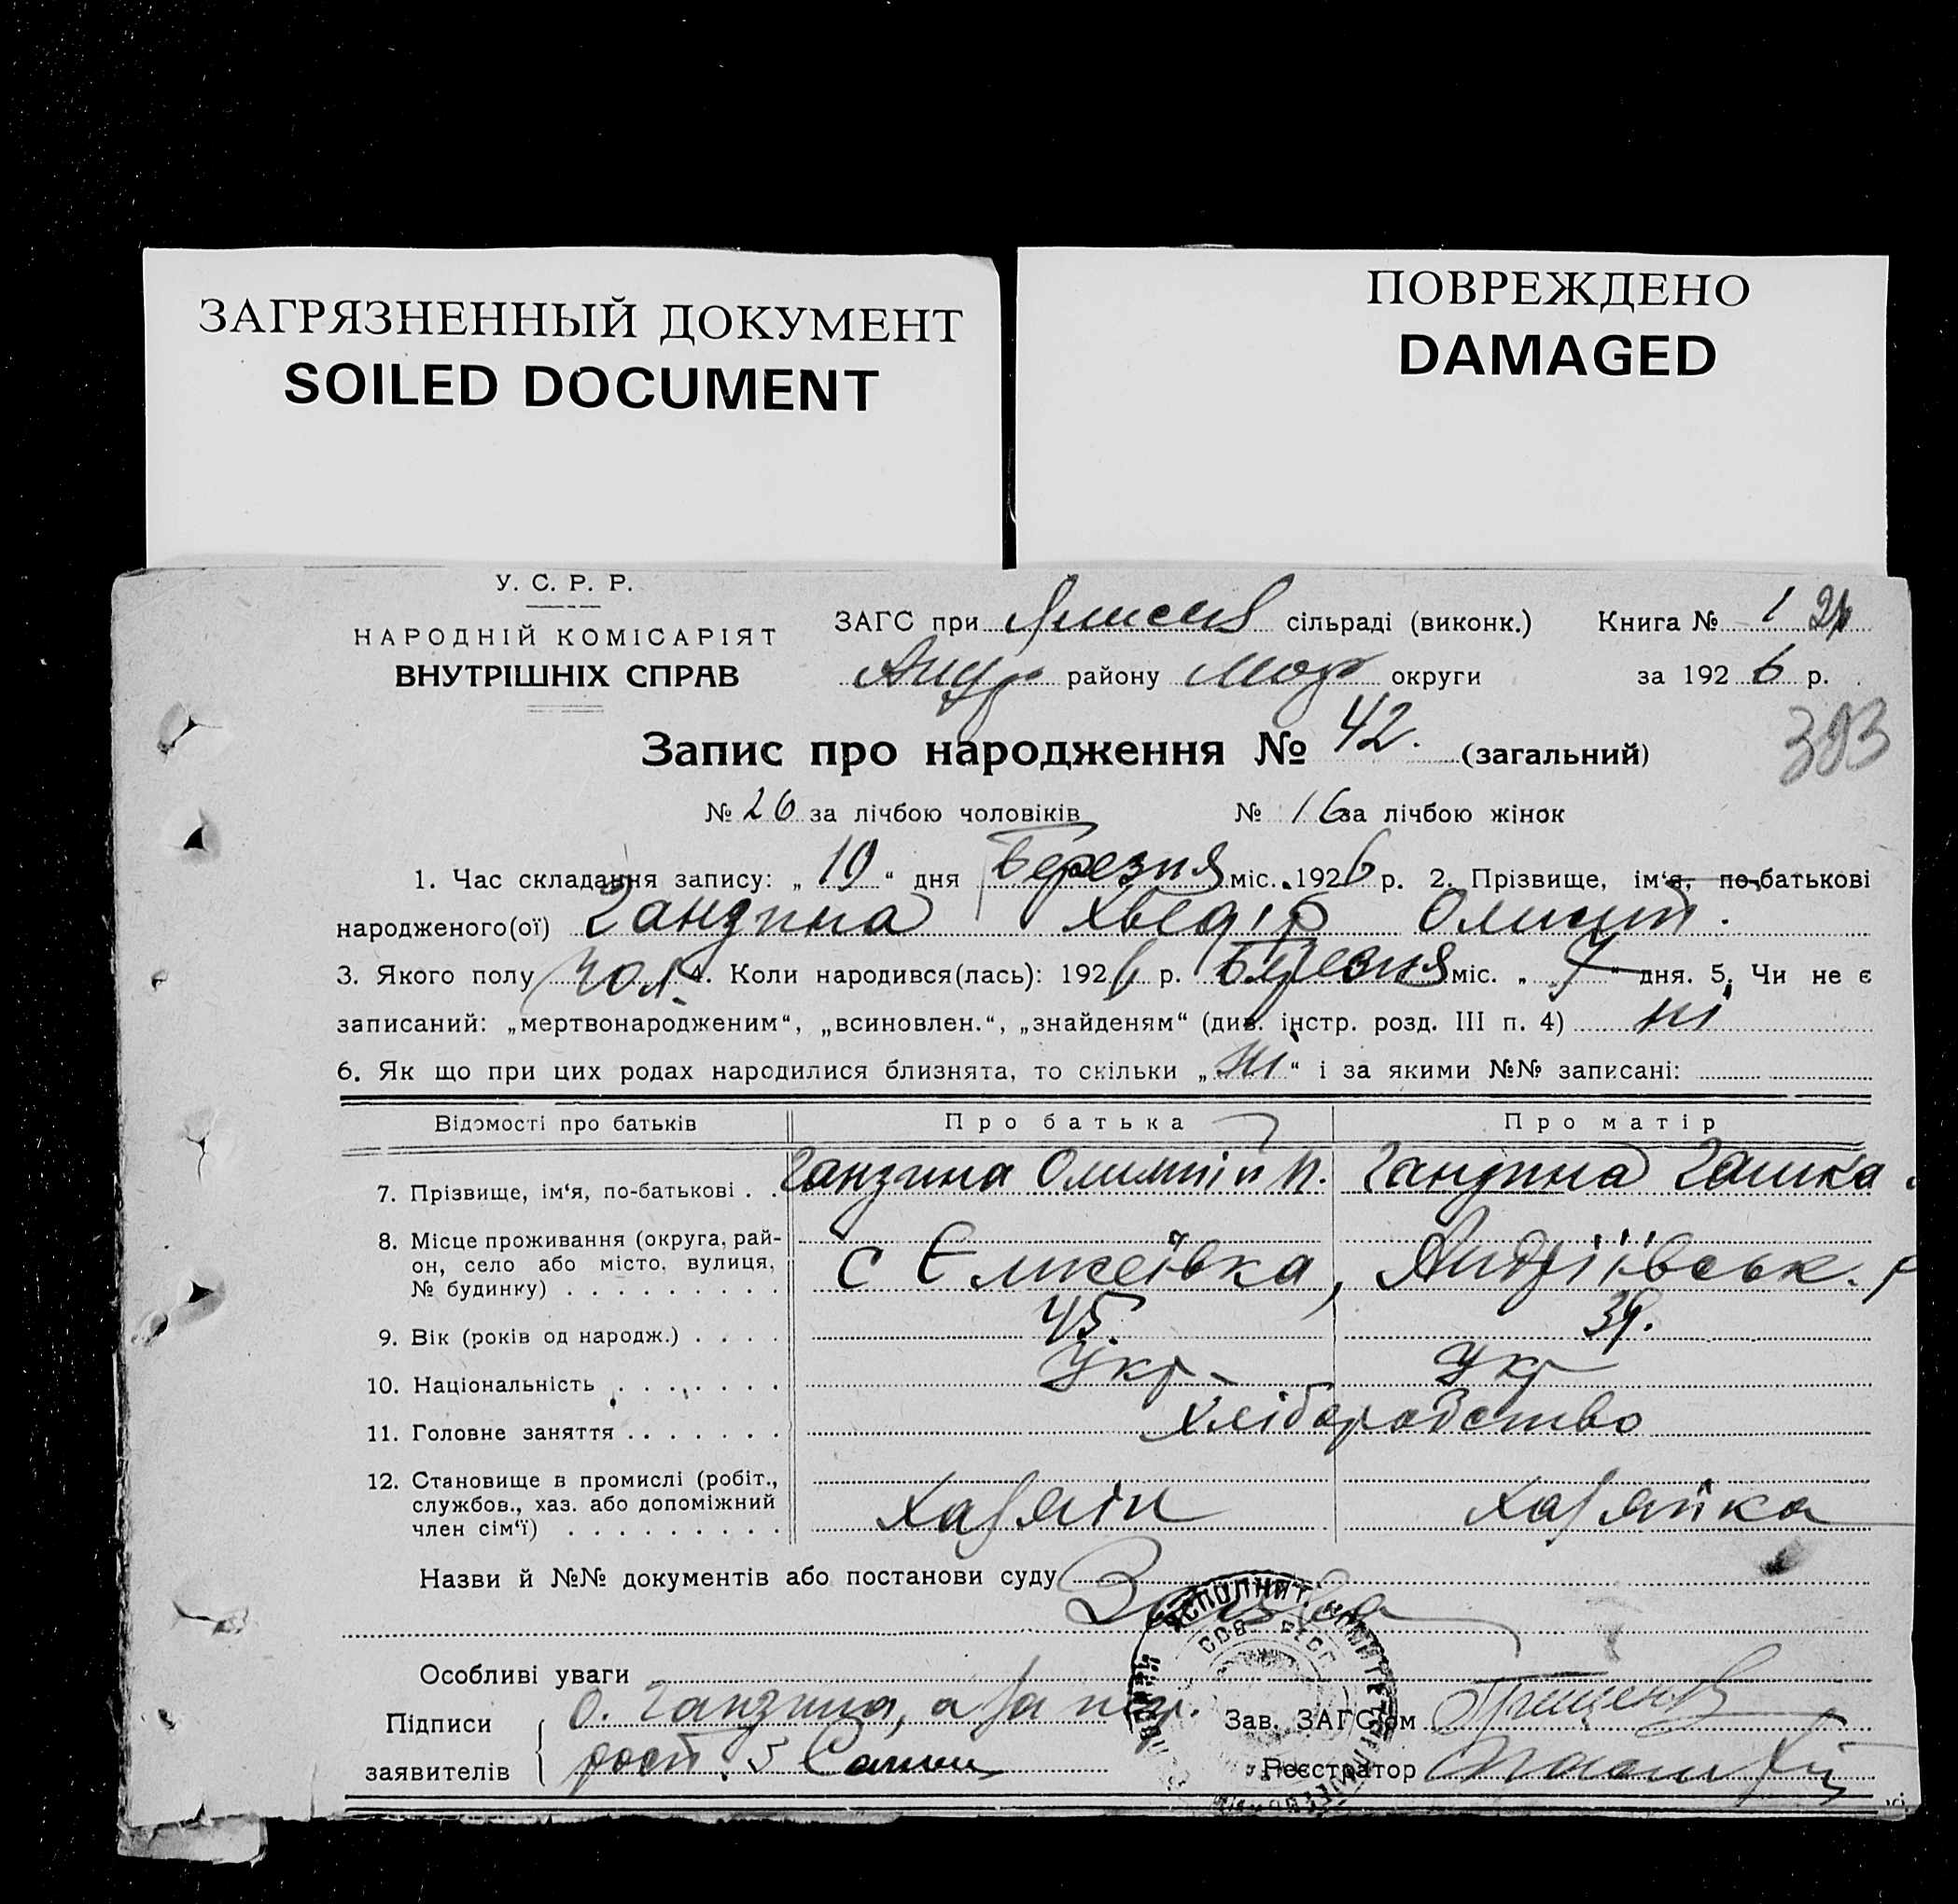 ЗАГРЯЗНЕННЫЙ ДОКУМЕНТ
SOILED DOCUMENT
ПОВРЕЖДЕНО
DAMAGED
У. С. Р. Р.
НАРОДНІЙ КОМІСАРІЯТ
ВНУТРІШНІХ СПРАВ
ЗАГС при сільраді (виконк.) Книга № 1
Андр району округи за 1926 р.
393
Запис про народження № 42. (загальний)
№ 26 за лічбою чоловіків № 16 за лічбою жінок
1. Час складання запису: „ 10 “ дня Березня міс. 1926 р. 2. Прізвище, ім‘я, по-батькові
народженого(ої) Ганзина Хведір Олимп.
3. Якого полу чол. 4. Коли народився(лась): 1926 р. Березня міс. „ “ дня. 5. Чи не є
записаний: „мертвонародженим“, „всиновлен.“, „знайденям“ (див. інстр. розд. III п. 4) ні
6. Як що при цих родах народилися близнята, то скільки „ ні “ і за якими №№ записані:
Відомості про батьків Про батька Про матір
7. Прізвище, ім‘я, по-батькові . . Ганзина Олимпій П. Ганзина Гашка
8. Місце проживання (округа, рай-
он, село або місто, вулиця,
№ будинку) . . . . . . . . . с Єлисеївка, Андріївськ. р
9. Вік (років од народж.) . . . . 45. 39.
10. Національність . . . . . . . Укр- Укр
11. Головне заняття . . . . . . . Хліборобство
12. Становище в промислі (робіт.,
службов., хаз. або допоміжний
член сім‘ї) . . . . . . . . . Хазяїн Хазяйка
Назви й №№ документів або постанови суду
Особливі уваги
Підписи О. Ганзина, а за Зав. ЗАГС‘ом
заявителів Реєстратор